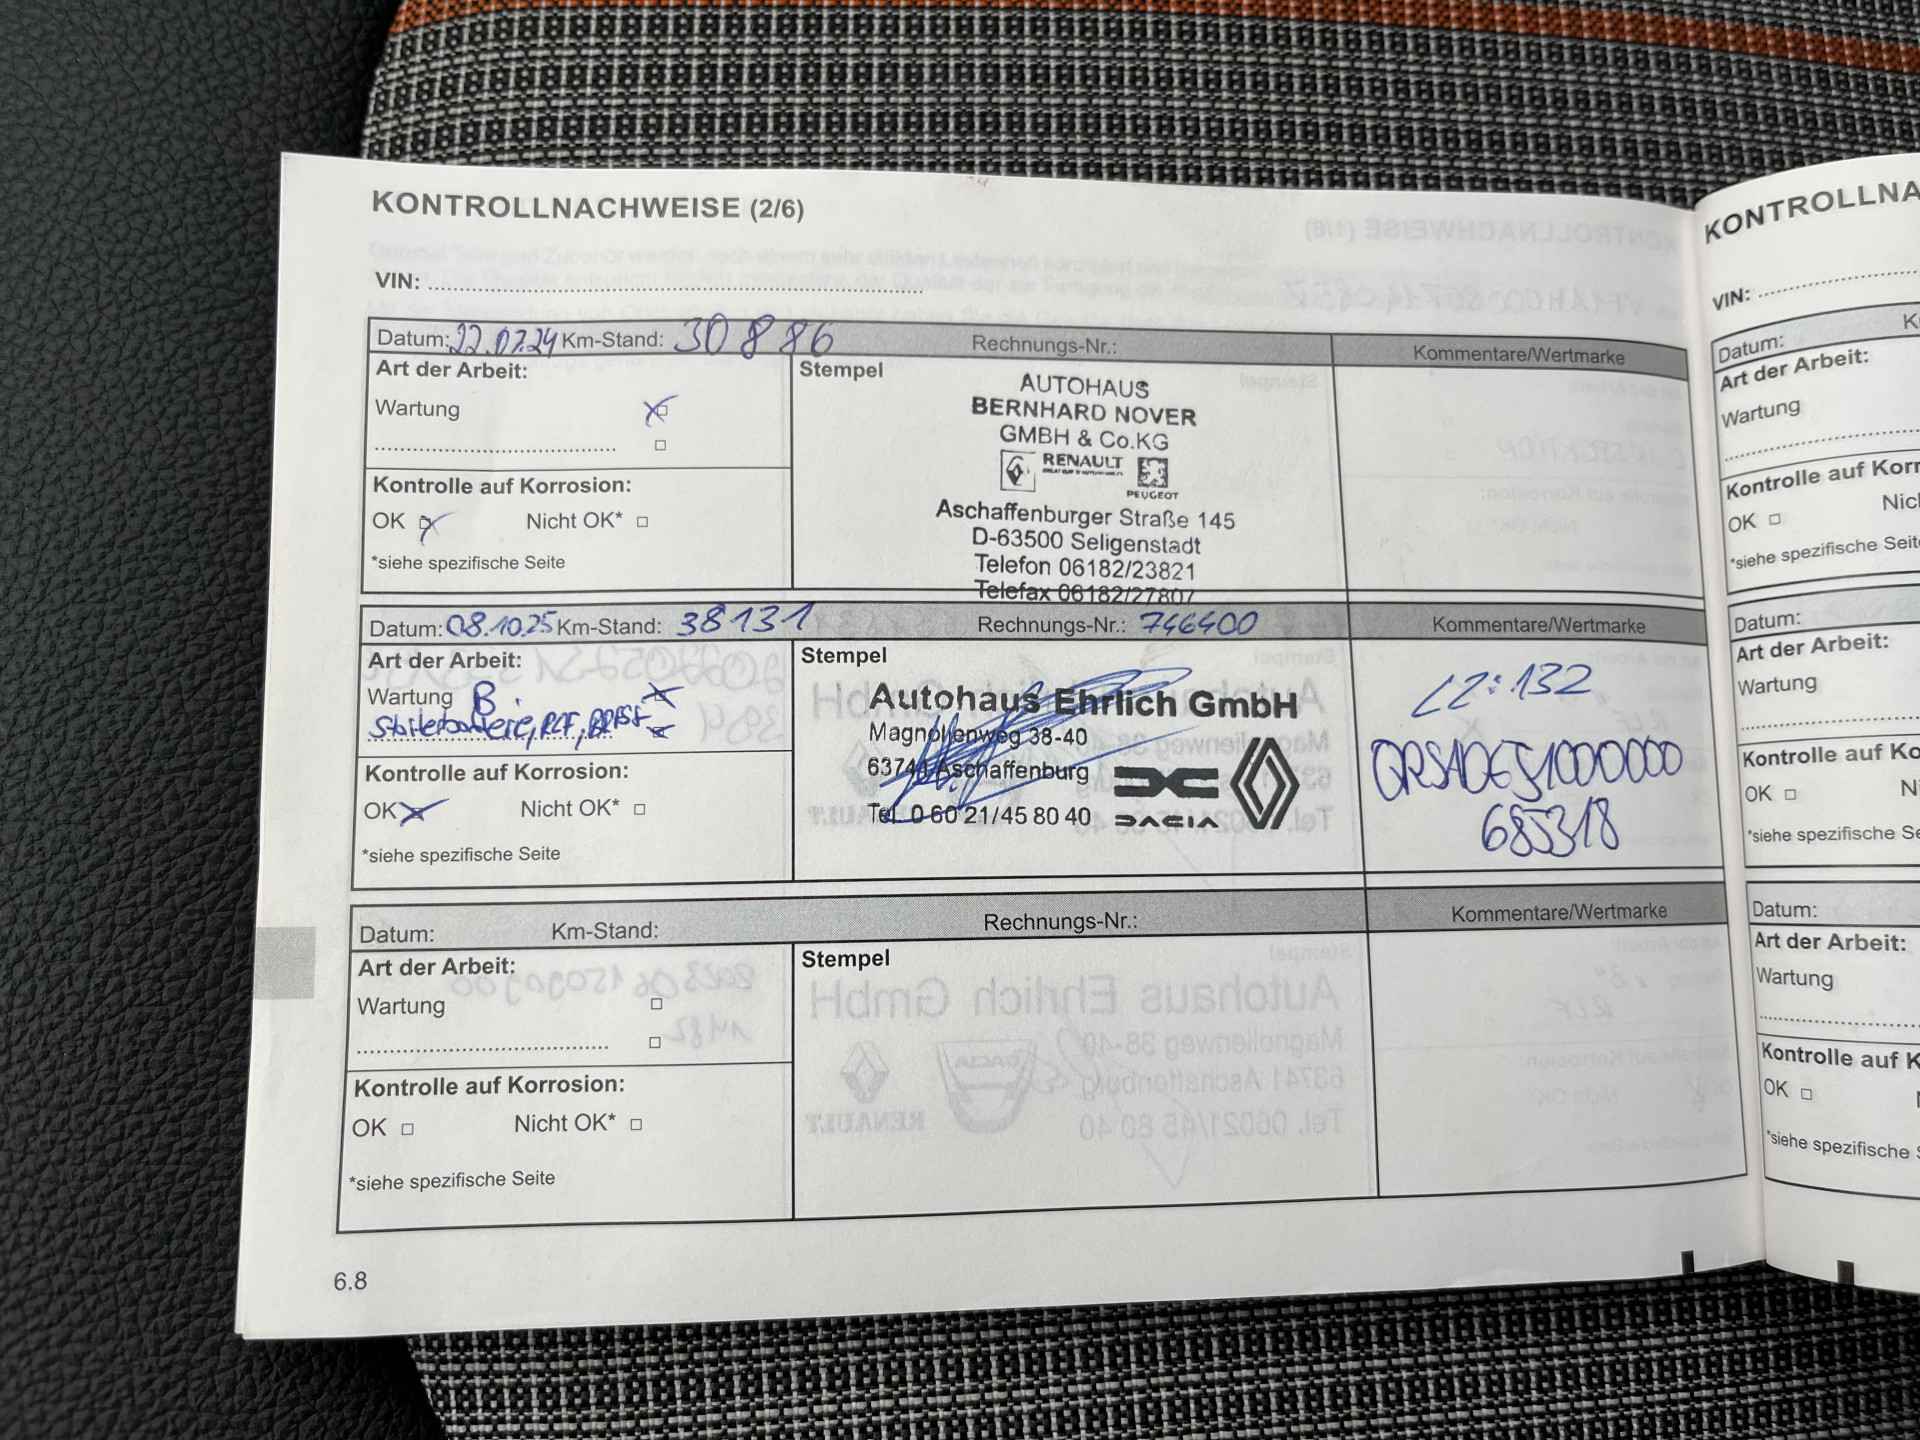 KONTROLLNACHWEISE (2/6)
VIN:
Datum: 22.07.24 Km-Stand: 30886 Rechnungs-Nr.: Kommentare/Wertmarke
Art der Arbeit:
Wartung
Kontrolle auf Korrosion:
OK Nicht OK*
*siehe spezifische Seite
Stempel
AUTOHAUS
BERNHARD NOVER
GMBH & Co.KG
RENAULT
PEUGEOT
Aschaffenburger Straße 145
D-63500 Seligenstadt
Telefon 06182/23821
Telefax 06182/27807
Datum: 08.10.25 Km-Stand: 38131 Rechnungs-Nr.: 746400 Kommentare/Wertmarke
Art der Arbeit:
Wartung B
Starterbatterie, RLF,
Kontrolle auf Korrosion:
OK Nicht OK*
*siehe spezifische Seite
Stempel
Autohaus Ehrlich GmbH
Magnolienweg 38-40
63741 Aschaffenburg
Tel. 0 60 21/45 80 40
DACIA
LZ: 132
685318
Datum: Km-Stand: Rechnungs-Nr.: Kommentare/Wertmarke
Art der Arbeit:
Wartung
Kontrolle auf Korrosion:
OK Nicht OK*
*siehe spezifische Seite
Stempel
6.8
KONTROLLNA
VIN:
Datum: K
Art der Arbeit:
Wartung
Kontrolle auf Korr
OK Nicl
*siehe spezifische Seite
Datum:
Art der Arbeit:
Wartung
Kontrolle auf Ko
OK N
*siehe spezifische Se
Datum:
Art der Arbeit:
Wartung
Kontrolle auf K
OK
*siehe spezifische S